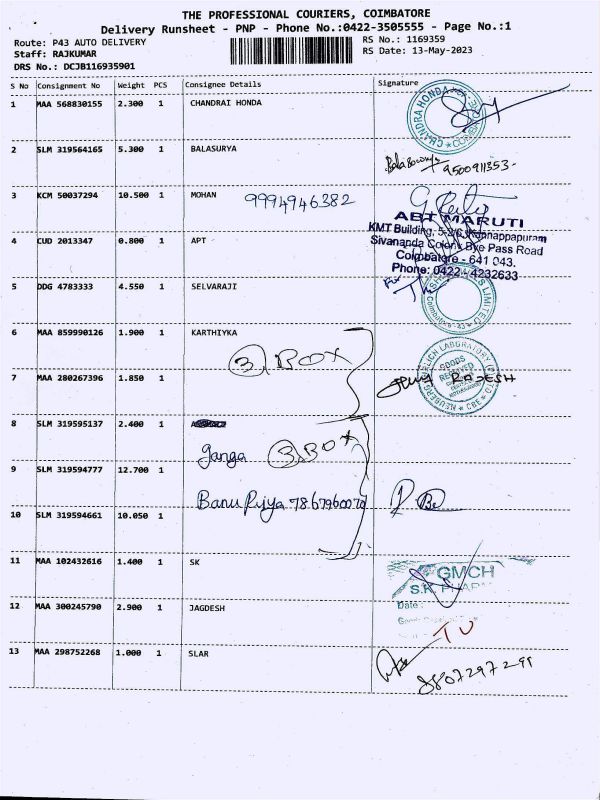 THE PROFESSIONAL COURIERS, COIMBATORE
Delivery Runsheet - PNP - Phone No.:0422-3505555 - Page No.:1
Route: P43 AUTO DELIVERY
Staff: RAJKUMAR
DRS No.: DCJB116935901
RS No.: 1169359
RS Date: 13-May-2023
S No Consignment No Weight PCS Consignee Details Signature
1 MAA 568830155 2.300 1 CHANDRAI HONDA
CHANDRA HONDA
2 SLM 319564165 5.300 1 BALASURYA
9500911353-
3 KCM 50037294 10.500 1 MOHAN 9994946382
ABT MARUTI
KMT Building, 5-2/6, Kannappapuram
Sivananda Colony Bye Pass Road
Coimbatore - 641 043.
Phone: 0422 - 4232633
For
4 CUD 2013347 0.800 1 APT
5 DDG 4783333 4.550 1 SELVARAJI
LIMITED
Coimbatore - 43
6 MAA 859990126 1.900 1 KARTHIYKA
3, BOX
LABORATORY (P) LTD
GOODS
RECEIVED
CBE
7 MAA 280267396 1.850 1
8 SLM 319595137 2.400 1
Ganga 3, BOX
9 SLM 319594777 12.700 1
Banu Priya 7867960070
10 SLM 319594661 10.050 1
11 MAA 102432616 1.400 1 SK
GMCH
S.K. PHARM
Date :
12 MAA 300245790 2.900 1 JAGDESH
13 MAA 298752268 1.000 1 SLAR
8807297299